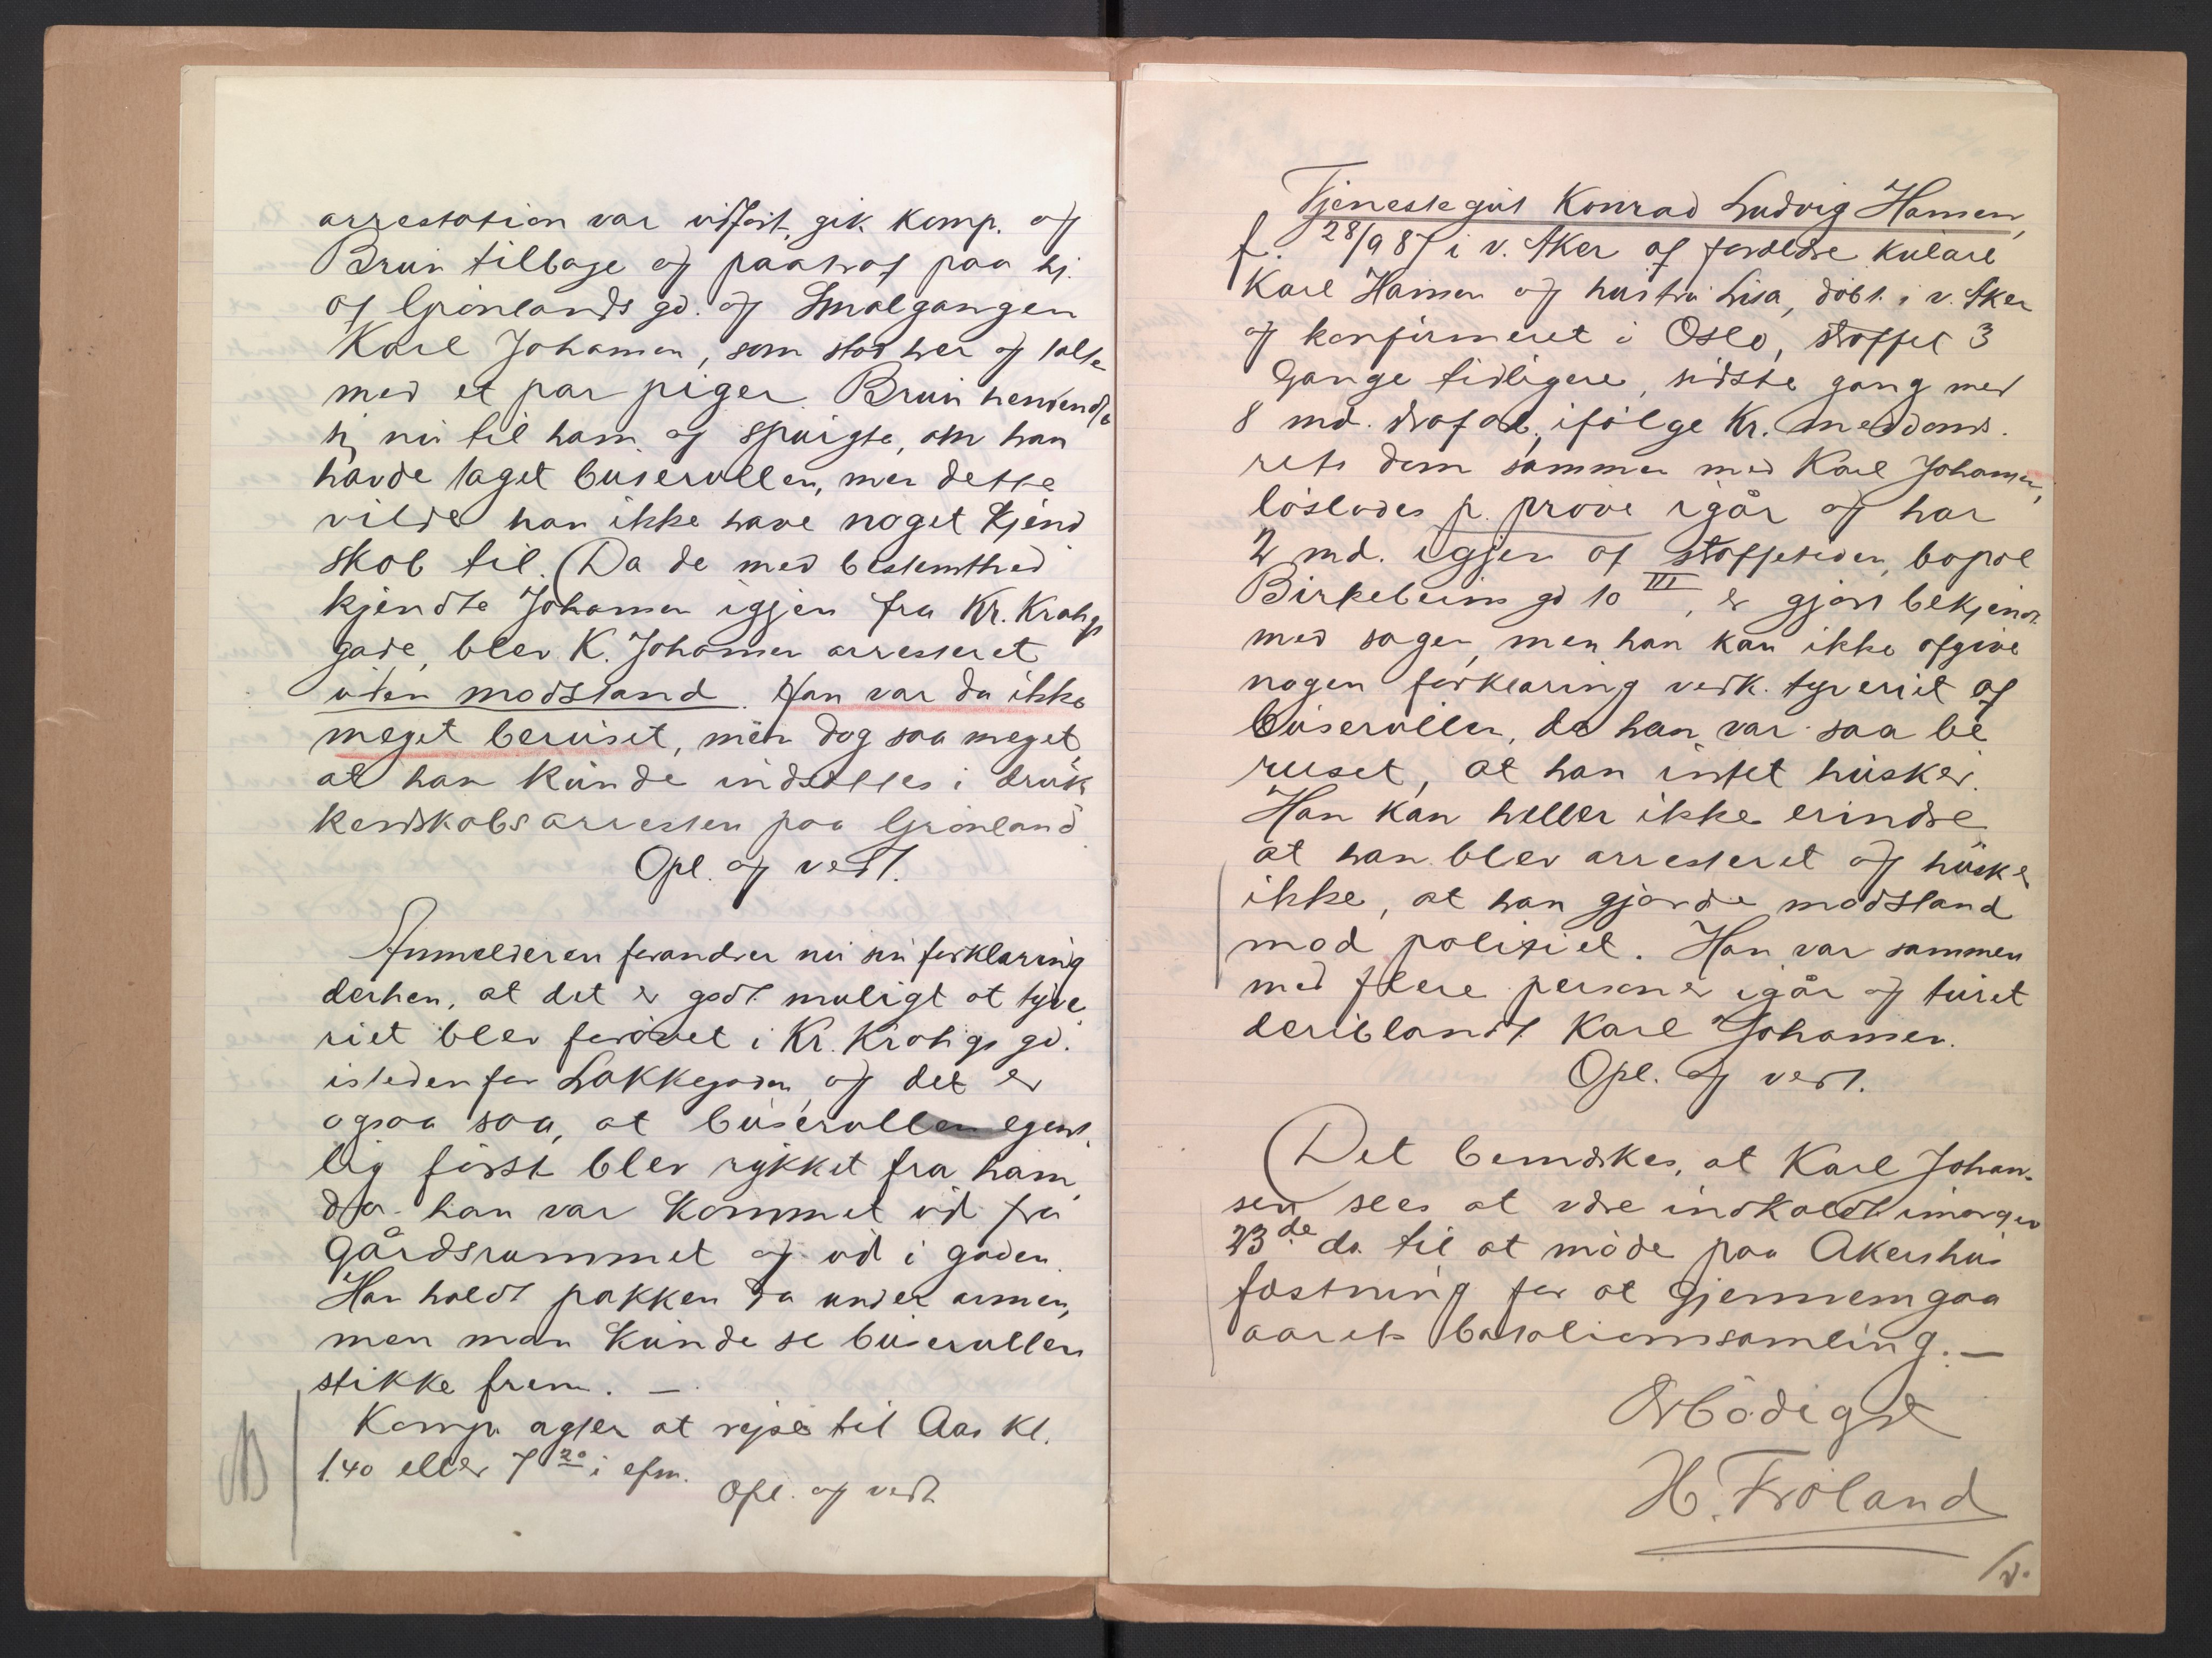 arrestation var udført, gik komp. og
Bruun tilbage og paatraf paa hj.
af Grønlands gd. og Smalgangen
Karl Johansen, som stod her og talte
med et par piger. Bruun henvendte
sig nu til ham og spurgte, om han
havde taget buserullen, men dette
vilde han ikke have noget kjend
skab til. Da de med bestemthed
kjendte Johansen igjen fra Kr. Krohgs
gade, blev K. Johansen arresteret
uden modstand. Han var da ikke
meget beruset, men dog saa meget
at han kunde indsættes i druk
kenskabsarresten paa Grønland
Opl. og vedt.
Anmelderen forandrer nu sin forklaring
derhen, at det er godt muligt at tyve
riet blev forøvet i Kr. Krohgs gd.
istedenfor Lakkegaden, og det er
ogsaa saa, at buserullen egent
lig først blev rykket fra ham,
da han var kommet ud fra
gårdsrummet og ud i gaden.
Han holdt pakken da under armen,
men man kunde se buserullen
stikke frem. —
Komp. agter at rejse til Aas kl.
1.40 eller 7 20 i efm.
Opl. og vedt.
Tjenestegut Konrad Ludvig Hansen,
f. 28/9 87 i v. Aker af forældre
Karl Hansen og hustru Lisa, døbt i v. Aker
og konfirmeret i Oslo, straffet 3
Gange tidligere, sidste gang med
8 md. strafarb. ifølge Kr. meddoms.
rets dom sammen med Karl Johansen,
løslades p. prøve igår og har
2 md. igjen af straffetiden, bopæl
Birkebeins gd 10 III, er gjort bekjendt
med sagen, men han kan ikke afgive
nogen forklaring vedk. tyveriet af
buserullen, da han var saa be
ruset, at han intet husker.
Han kan heller ikke erindre
at han blev arresteret og husker
ikke, at han gjorde modstand
mod politiet. Han var sammen
med flere personer igår og turet
deriblandt Karl Johansen.
Opl. og vedt.
Det bemærkes, at Karl Johan-
sen sees at være indkaldt imorgen
23de ds. til at møde paa Akershus
fæstning for at gjennemgaa
aarets bataljonssamling. —
Ærbødigst
H. Frøland
/v.